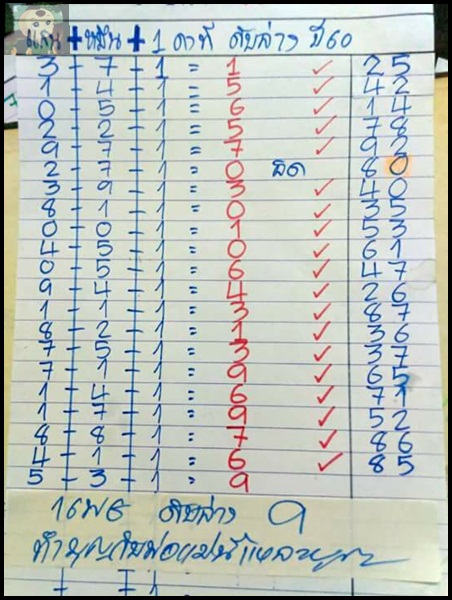 แสน + หมื่น + 1 คงที่ ดับล่าง ปี60
3 - 7 - 1 = 1 ✓ 25
1 - 4 - 1 = 5 ✓ 42
0 - 5 - 1 = 6 ✓ 14
2 - 2 - 1 = 5 ✓ 78
9 - 7 - 1 = 7 ✓ 92
2 - 7 - 1 = 0 ผิด 80
3 - 9 - 1 = 3 ✓ 40
8 - 1 - 1 = 0 ✓ 35
0 - 0 - 1 = 1 ✓ 53
4 - 5 - 1 = 0 ✓ 61
0 - 5 - 1 = 6 ✓ 47
9 - 4 - 1 = 4 ✓ 26
1 - 1 - 1 = 3 ✓ 87
8 - 2 - 1 = 1 ✓ 36
7 - 5 - 1 = 3 ✓ 37
7 - 1 - 1 = 9 ✓ 65
1 - 4 - 1 = 6 ✓ 71
1 - 7 - 1 = 9 ✓ 52
8 - 8 - 1 = 7 ✓ 86
4 - 1 - 1 = 6 ✓ 85
5 - 3 - 1 = 9
16พย ดับล่าง 9
ทำบุญกับพ่อแม่นี่แหละ